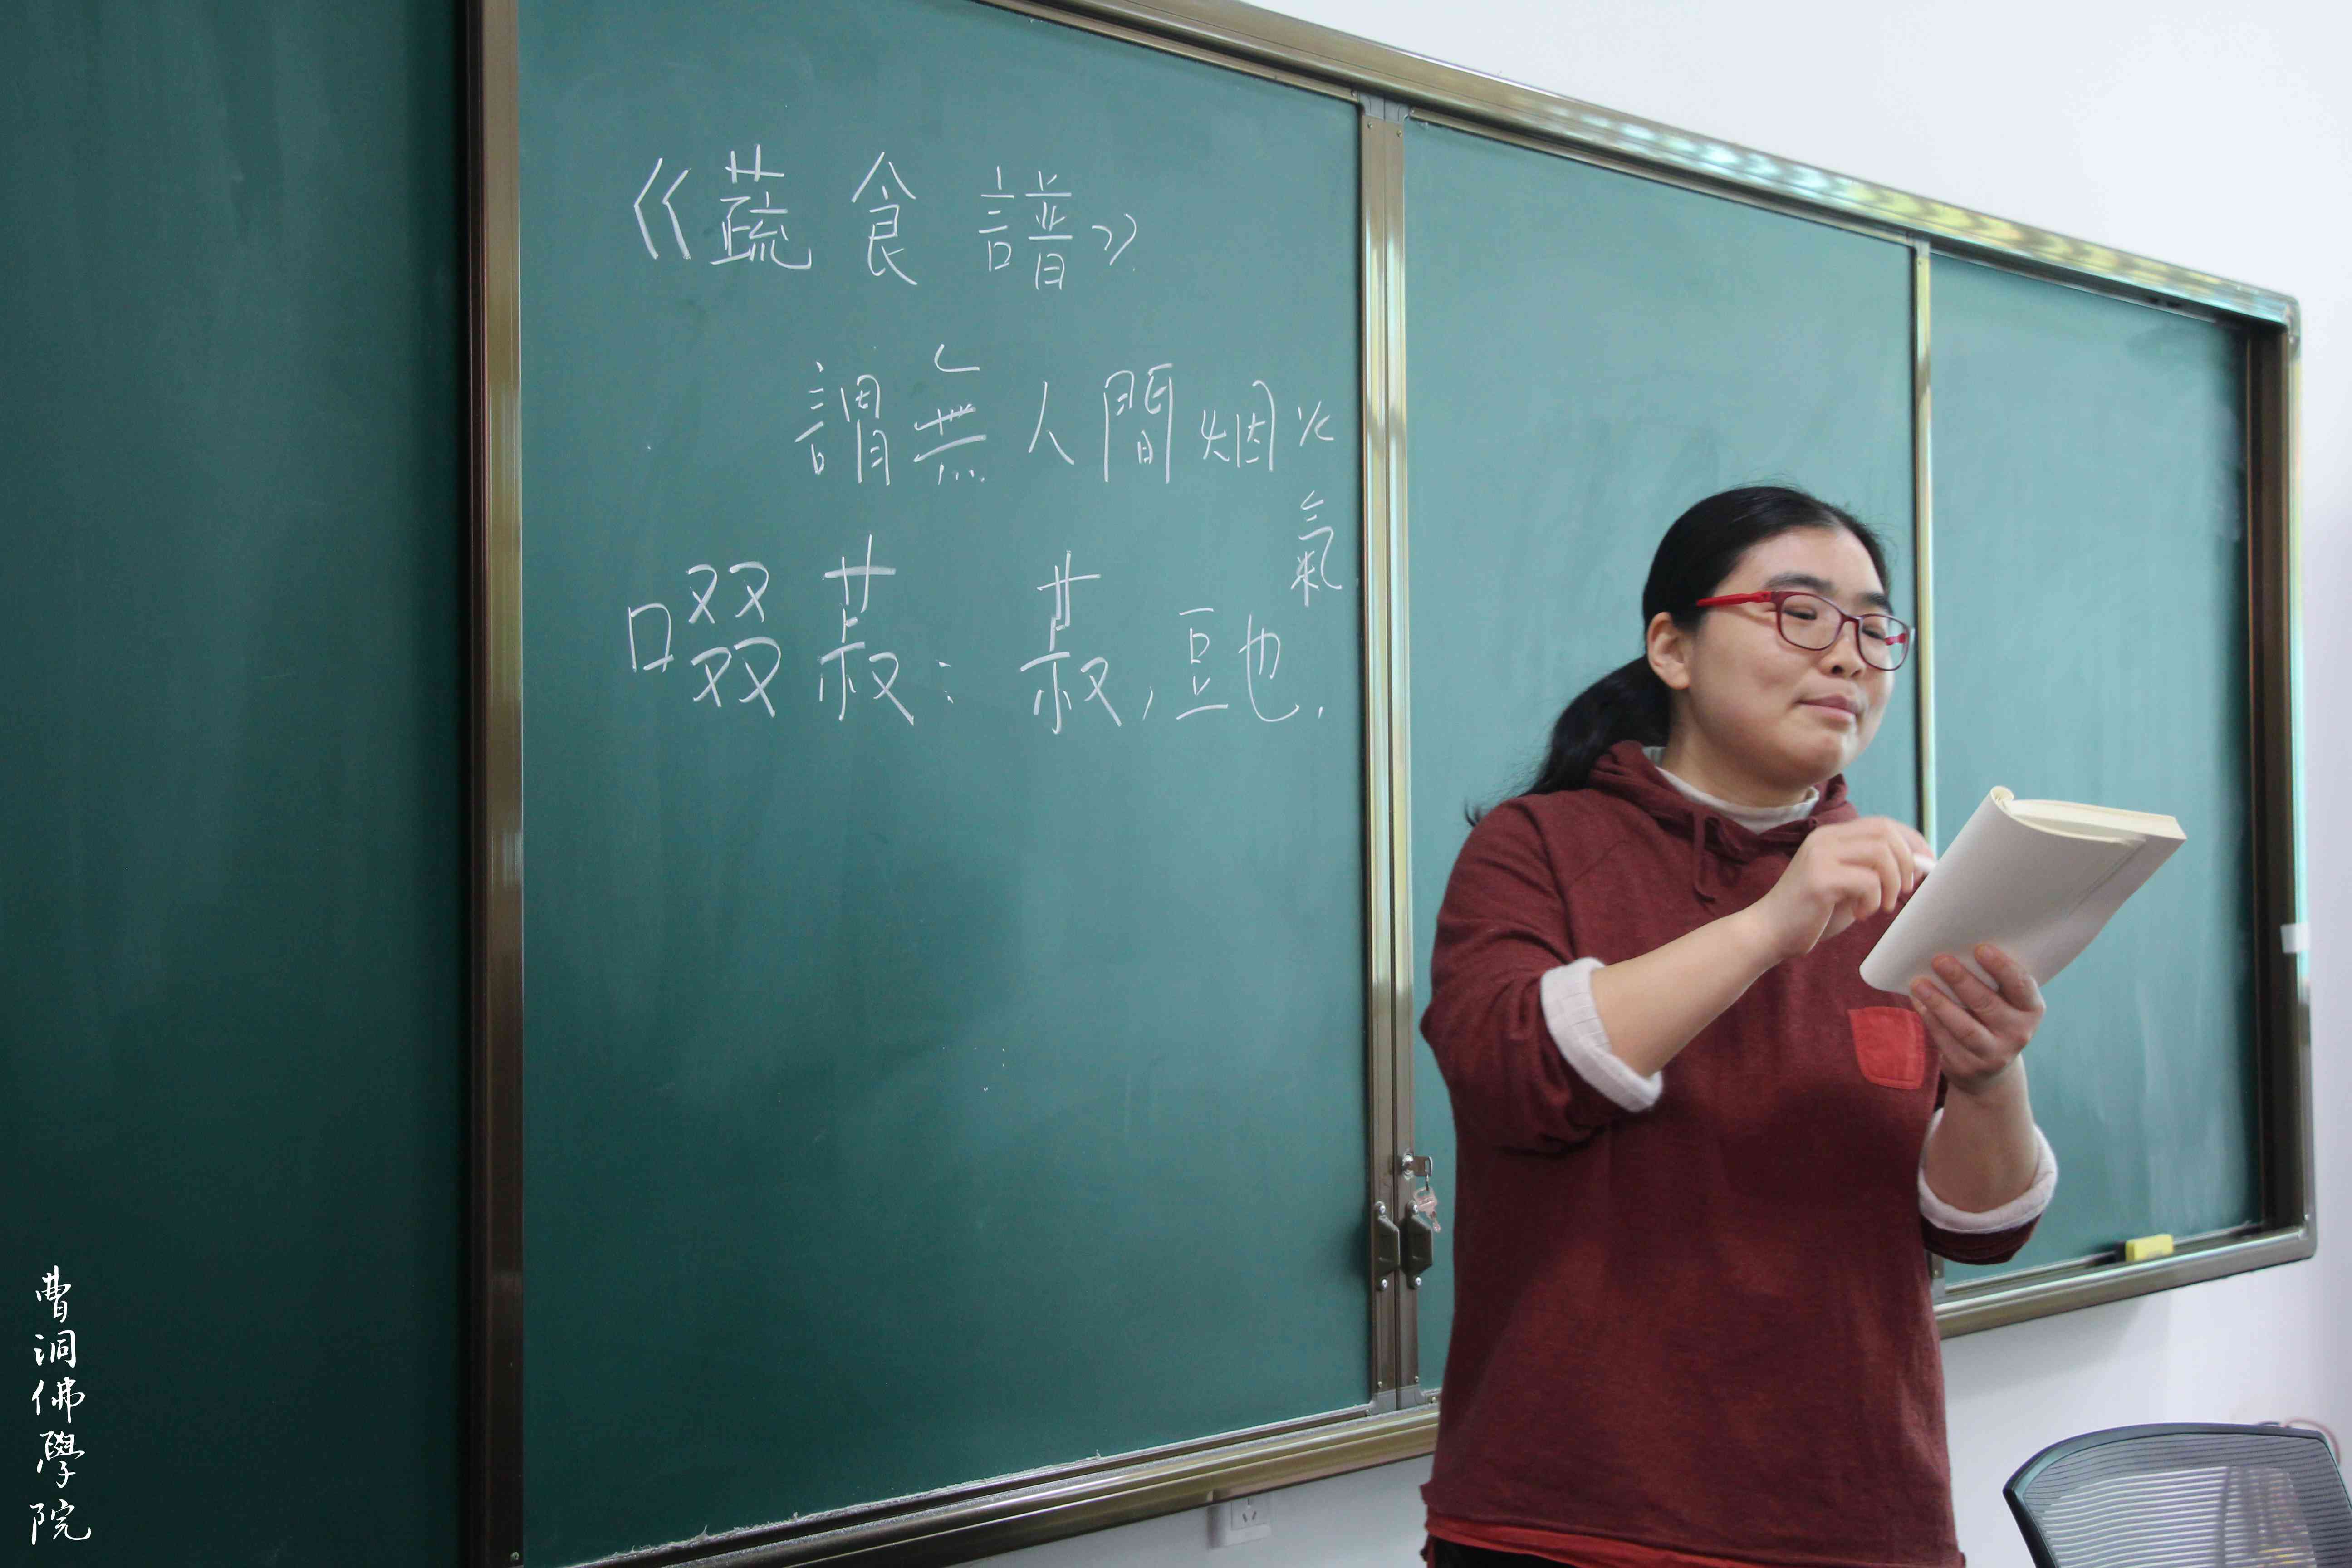 《蔬食譜》
謂無人間烟火
氣
啜菽：菽，豆也.
曹洞佛學院